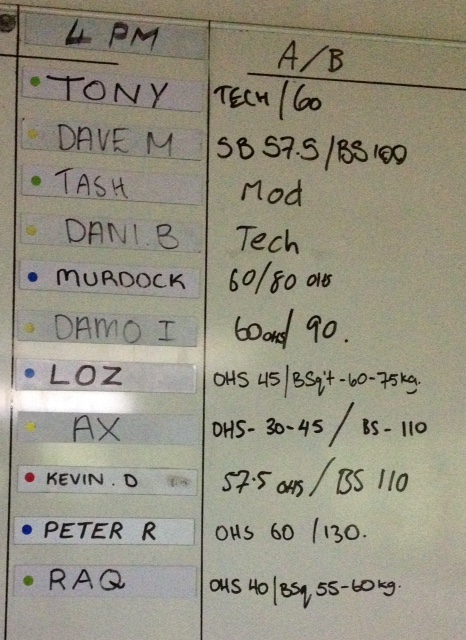 4 PM A/B
TONY TECH/60
DAVE M SB 57.5/BS 100
TASH Mod
DANI.B Tech
MURDOCK 60/80 OHS
DAMO I 60OHS/ 90.
LOZ OHS 45/BSq't-60-75kg.
AX OHS- 30-45 / BS- 110
KEVIN.D 57.5 OHS/BS 110
PETER R OHS 60 /130.
RAQ OHS 40/BSq 55-60kg.